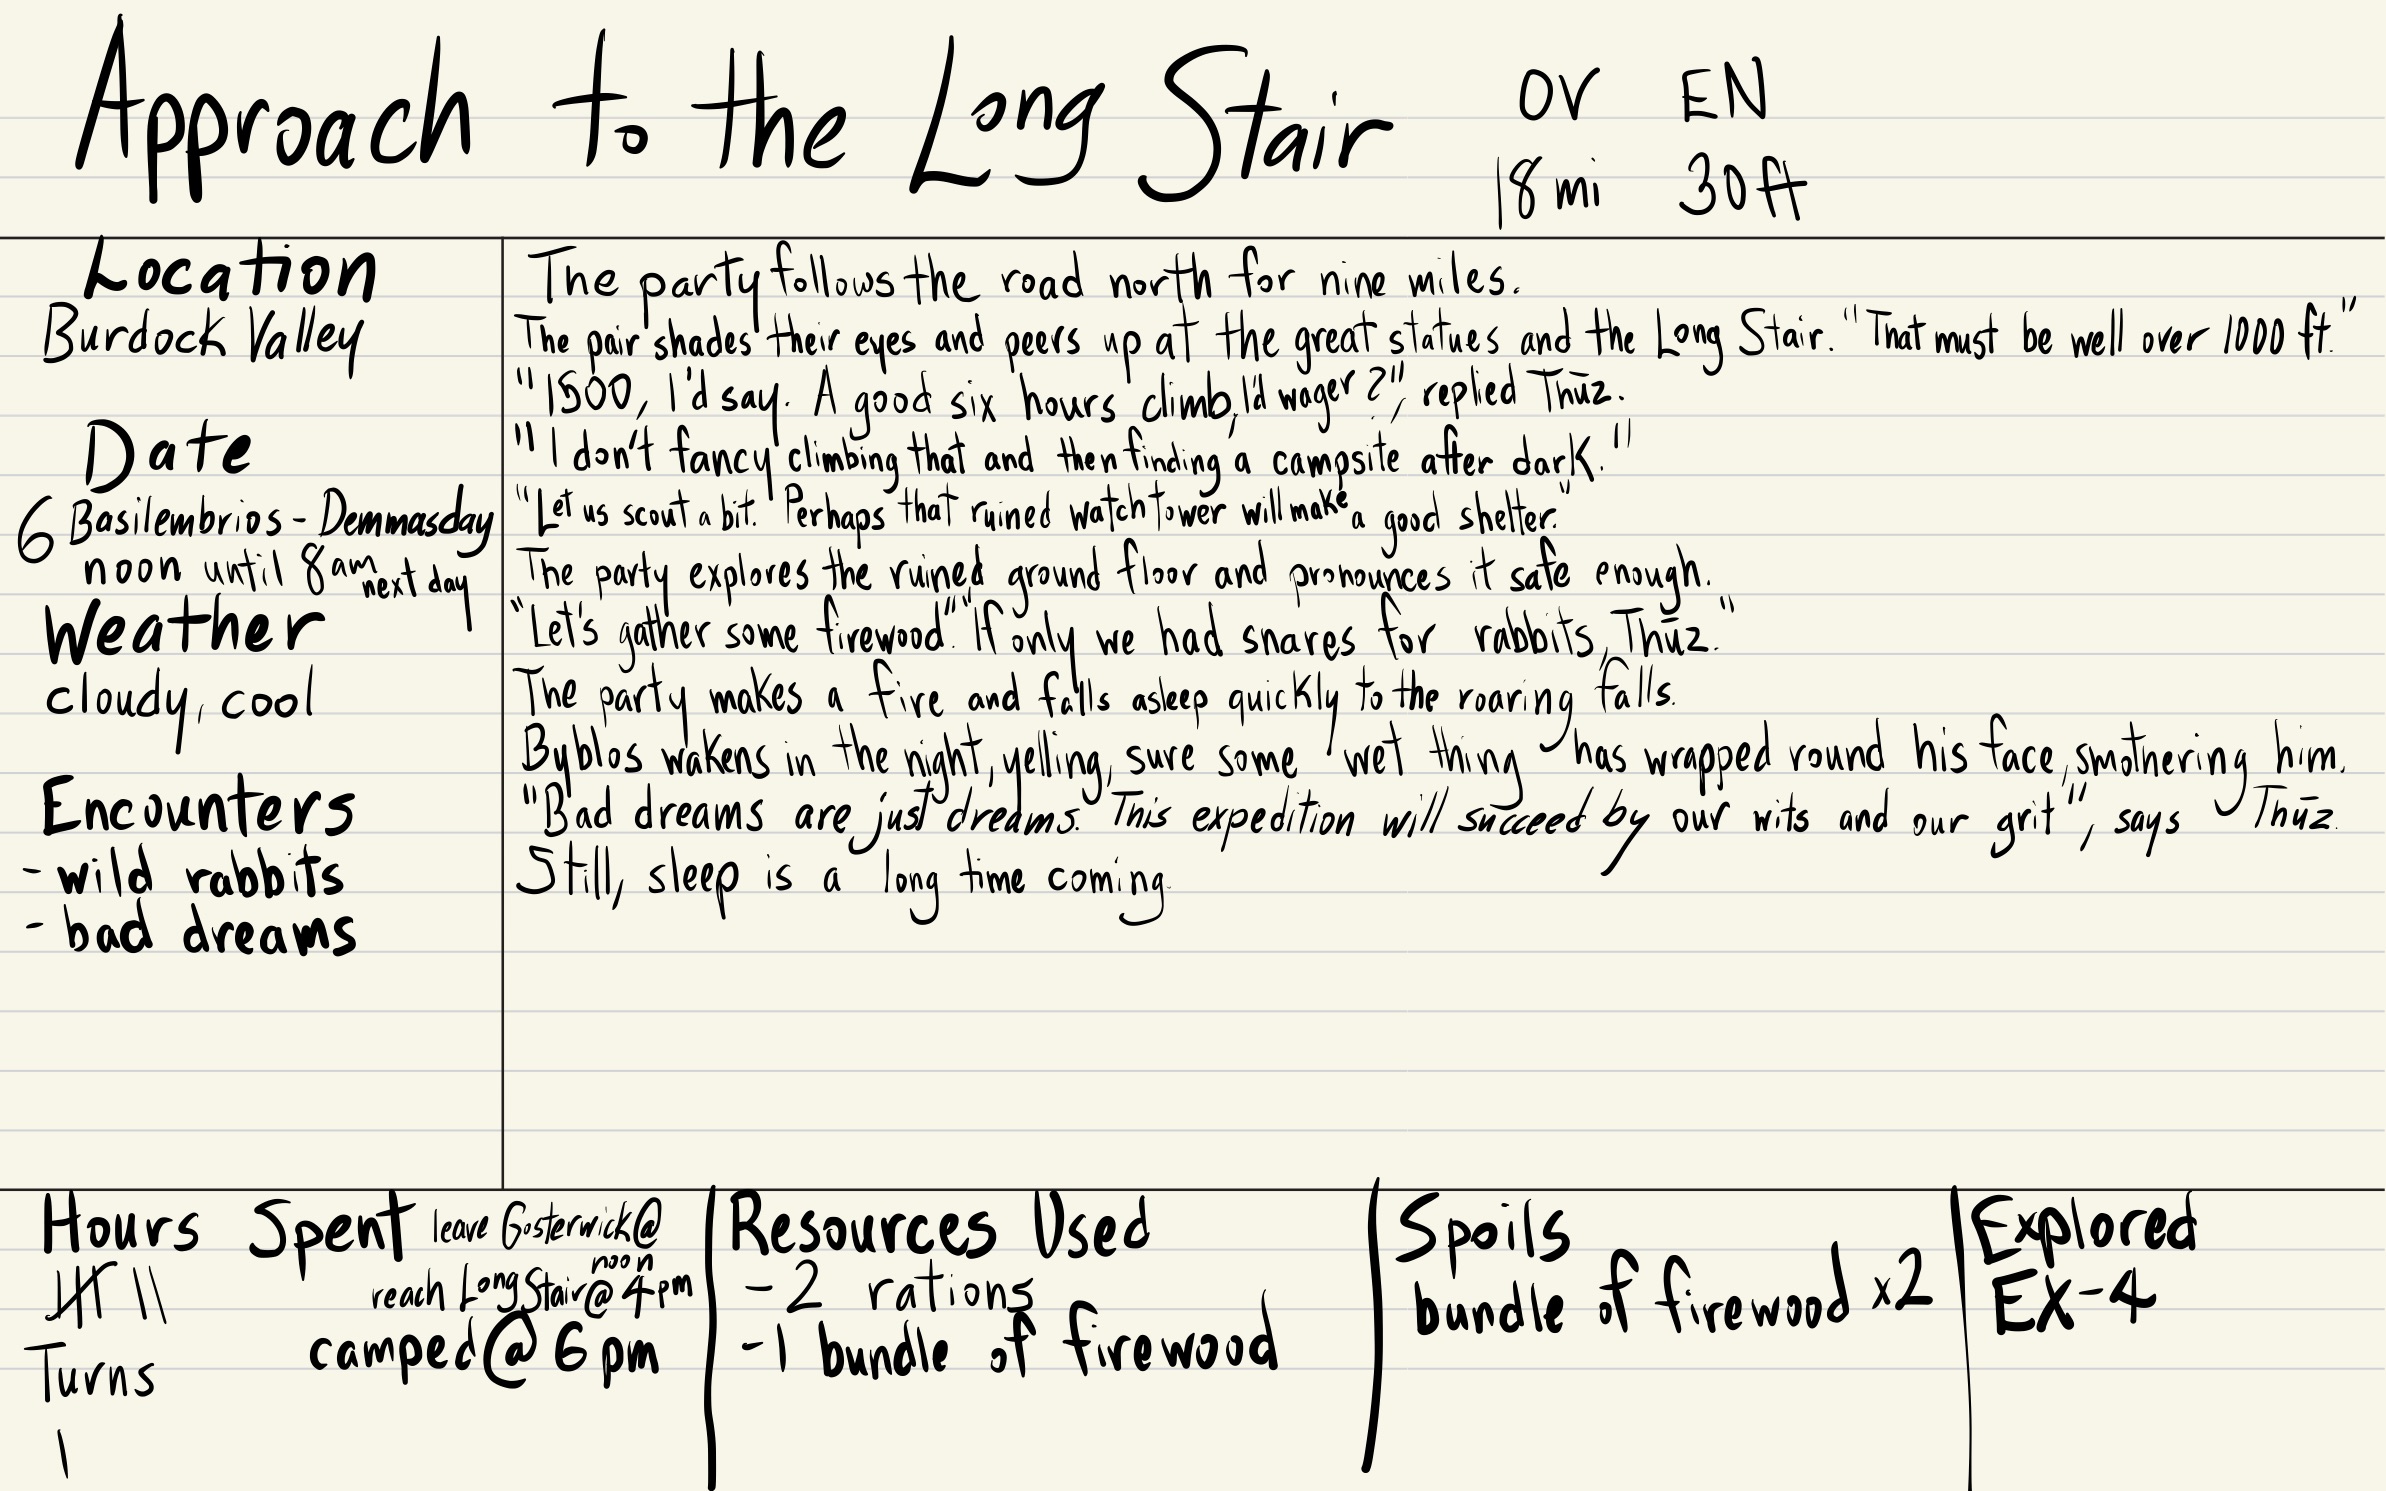 Approach to the Long Stair
OV EN
18 mi 30 ft
Location
Burdock Valley
Date
6 Basilembrios - Demmasday
noon until 8 am
next day
Weather
cloudy, cool
Encounters
- wild rabbits
- bad dreams
The party follows the road north for nine miles.
The pair shades their eyes and peers up at the great statues and the Long Stair. "That must be well over 1000 ft."
"1500, I'd say. A good six hours climb, I'd wager?", replied Thūz.
"I don't fancy climbing that and then finding a campsite after dark."
"Let us scout a bit. Perhaps that ruined watchtower will make a good shelter."
The party explores the ruined ground floor and pronounces it safe enough.
"Let's gather some firewood." "If only we had snares for rabbits, Thūz."
The party makes a fire and falls asleep quickly to the roaring falls.
Byblos wakens in the night, yelling, sure some wet thing has wrapped round his face, smothering him.
"Bad dreams are just dreams. This expedition will succeed by our wits and our grit", says Thūz.
Still, sleep is a long time coming.
Hours Spent
leave Gosterwick@
noon
reach Long Stair@ 4pm
camped@ 6pm
Turns
Resources Used
- 2 rations
- 1 bundle of firewood
Spoils
bundle of firewood x2
Explored
EX-4